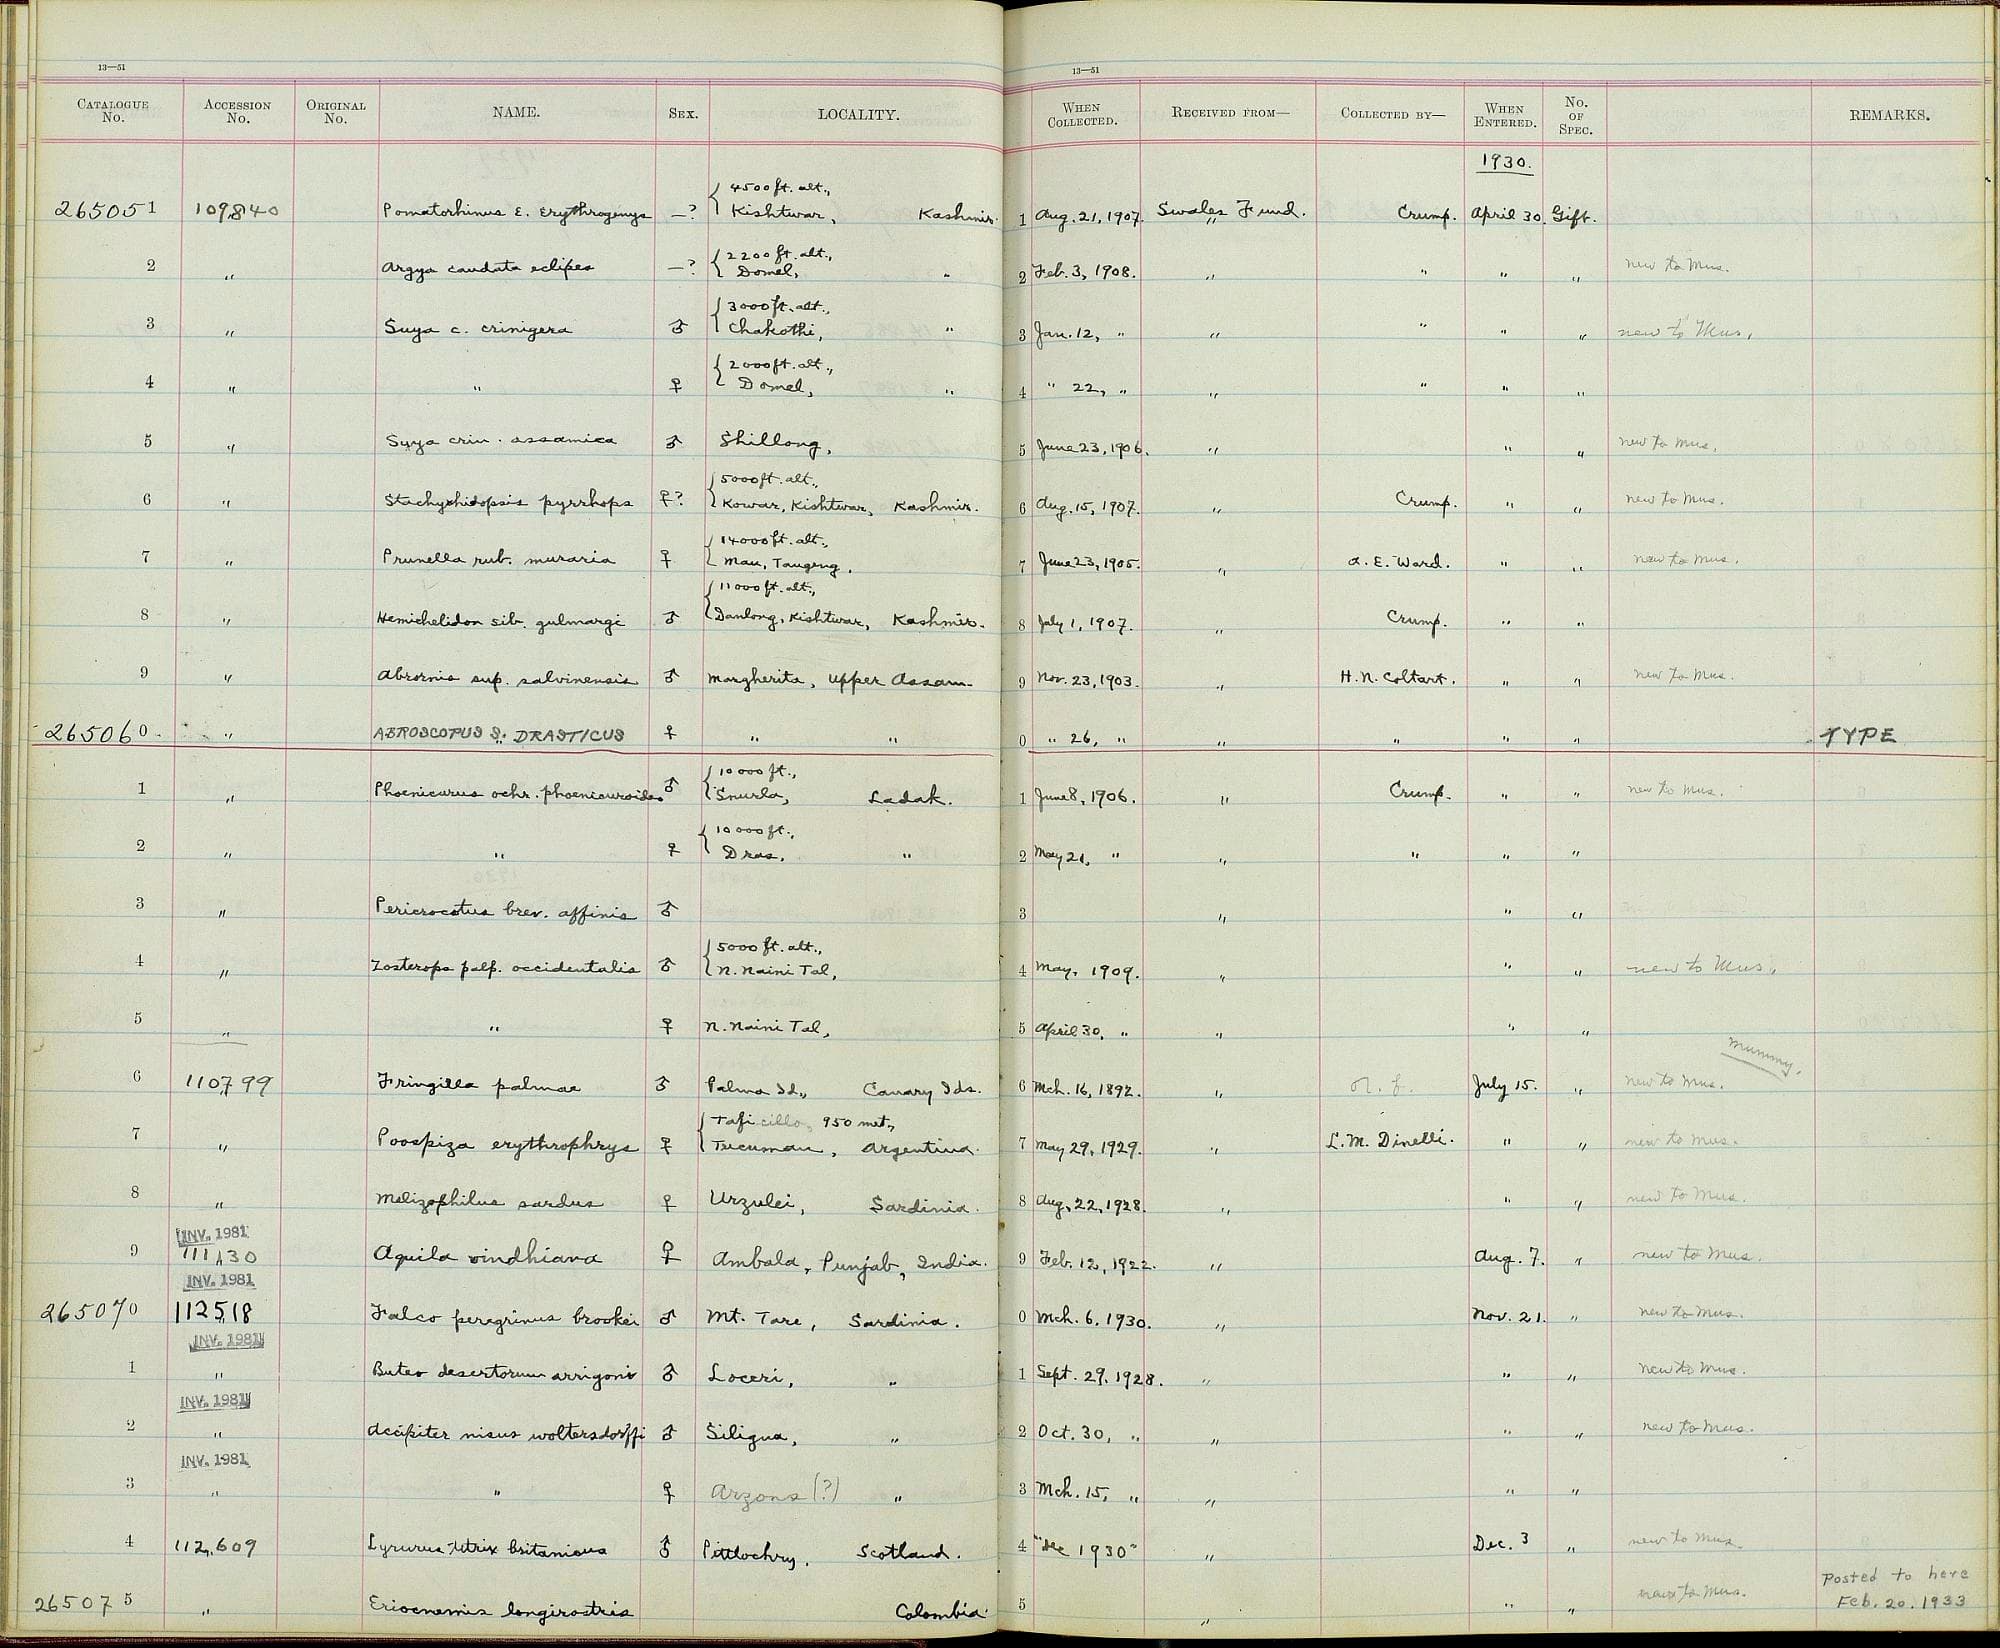 13—51 13—51
CATALOGUE No. ACCESSION No. ORIGINAL No. NAME. SEX. LOCALITY. WHEN COLLECTED. RECEIVED FROM— COLLECTED BY— WHEN ENTERED. No. OF SPEC. REMARKS.
1930.
4500 ft. alt.,
265051 109840 Pomatorhinus E. Erythrogenys —? Kishtwar, Kashmir. 1 Aug. 21, 1907. Swales Fund. Crump. April 30. Gift.
2200 ft. alt.,
2 " Argya caudata eclipes —? Domel, " 2 Feb. 3, 1908. " " " " new to Mus.
3000 ft. alt.,
3 " Suya c. crinigera ♂ Chakothi, " 3 Jan. 12, " " " " " new to Mus.
2000 ft. alt.,
4 " " ♀ Domel, " 4 " 22, " " " " "
5 " Suya crin. assamica ♂ Shillong, 5 June 23, 1906. " " " new to Mus.
5000 ft. alt.,
6 " Stachyrhidopsis pyrrhops ♀? Kowar, Kishtwar, Kashmir. 6 Aug. 15, 1907. " Crump. " " new to Mus.
14000 ft. alt.,
7 " Prunella rub. muraria ♀ Mau, Taugeng. 7 June 23, 1905. " A. E. Ward. " " new to Mus.
11000 ft. alt.,
8 " Hemichelidon sib. gulmargi ♂ Danlong, Kishtwar, Kashmir. 8 July 1, 1907. " Crump. " "
9 " Abrornis sup. salvinensis ♂ Margherita, Upper Assam. 9 Nov. 23, 1903. " H. N. Coltart. " " new to Mus.
265060 " ABROSCOPUS S. DRASTICUS ♀ " " 0 " 26, " " " " " TYPE
10000 ft.,
1 " Phoenicurus ochr. phoenicuroides ♂ Snurla, Ladak. 1 June 8, 1906. " Crump. " " new to Mus.
10000 ft.,
2 " " ♀ Dras, " 2 May 21, " " " " "
3 " Pericrocotus brev. affinis ♂ 3 " " "
5000 ft. alt.,
4 " Zosterops palp. occidentalis ♂ N. Naini Tal, 4 May, 1909. " " " new to Mus.
5 " " ♀ N. Naini Tal, 5 April 30, " " " "
mummy.
6 110799 Fringilla palmae ♂ Palma Id., Canary Ids. 6 Mch. 16, 1892. " July 15. " new to Mus.
Tafi cillo, 950 met.,
7 " Poospiza erythrophrys ♀ Tucuman, Argentina. 7 May 29, 1929. " L. M. Dinelli. " " new to Mus.
8 " Melizophilus sardus ♀ Urzulei, Sardinia. 8 Aug. 22, 1928. " " " new to Mus.
INV. 1981
9 111130 Aquila vindhiana ♀ Ambala, Punjab, India. 9 Feb. 12, 1922. " Aug. 7. " new to Mus.
INV. 1981
265070 112518 Falco peregrinus brookei ♂ Mt. Tare, Sardinia. 0 Mch. 6, 1930. " Nov. 21. " new to Mus.
INV. 1981
1 " Buteo desertorum arrigoni ♂ Loceri, " 1 Sept. 29, 1928. " " " new to Mus.
INV. 1981
2 " Accipiter nisus woltersdorffi ♂ Siligua, " 2 Oct. 30, " " " " new to Mus.
INV. 1981
3 " " ♀ Arzons (?) " 3 Mch. 15, " " " "
4 112,609 Lyrurus tetrix britanicus ♂ Pittlochry, Scotland. 4 "Dec 1930" " Dec. 3 " new to Mus.
265075 " Eriocnemis longirostris Colombia. 5 " " " new to Mus. Posted to here
Feb. 20. 1933